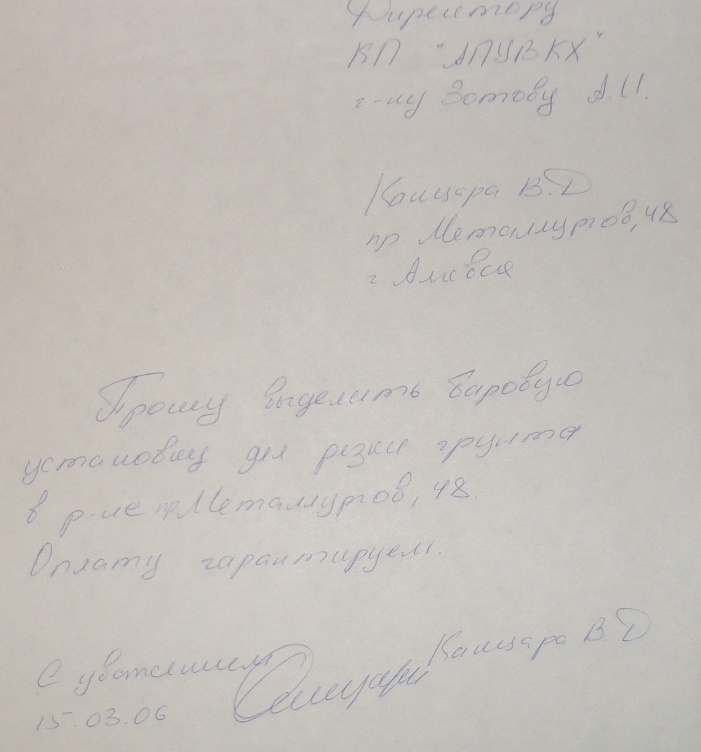 Директору
КП "АПУВКХ"
г-ну Зотову А.И.
Канцара В.Д
пр. Металлургов, 48
г.
Прошу выделить баровую
установку для резки грунта
в р-не пр. Металлургов, 48.
Оплату гарантируем.
С уважением Канцара В.Д
15.03.06